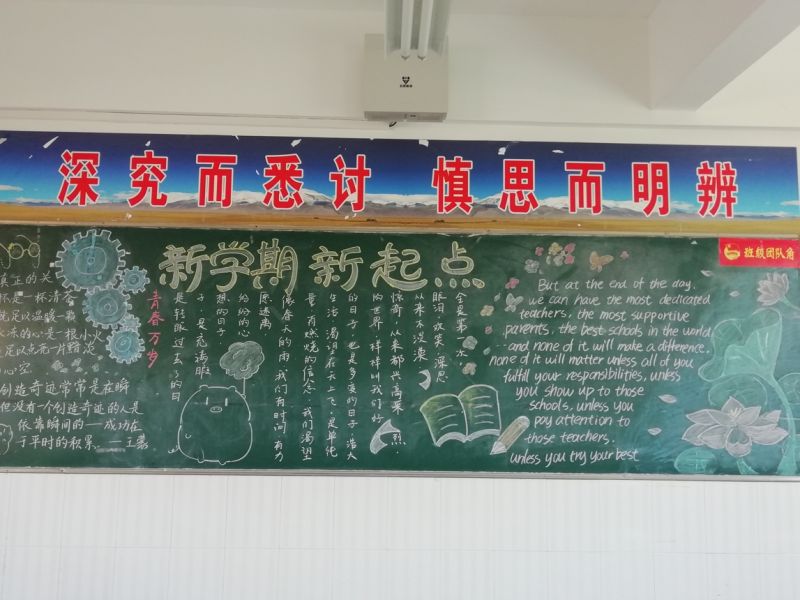 深究而悉讨 慎思而明辨
班级团队角
新学期 新起点
真正的关
怀是一杯清茶
就足以温暖一颗
冰冻的心是一根小火
足以点亮一片黯淡
心空
创造奇迹常常是在瞬
但没有一个创造奇迹的人是
依靠瞬间的—成功在
于平时的积累 —王蒙
青春万岁
是转眼过去了的日
子,是充满眼
想的日子
纷纷的心
愿迷离
像春天的雨,我们有时间,有力
量,有燃烧的信念,我们渴望
生活,渴望在天上飞,是单纯
的日子,也是多变的日子,浩大
的世界,样样叫我们好
惊奇,从来都兴高采烈.
从来不淡漠
眼泪,欢笑,深思
全是第一次
But at the end of the day,
we can have the most dedicated
teachers, the most supportive
parents, the best schools in the world
--and none of it will make a difference,
none of it will matter unless all of you
fulfill your responsibilities, unless
you show up to those
schools, unless you
pay attention to
those teachers.
unless you try your best